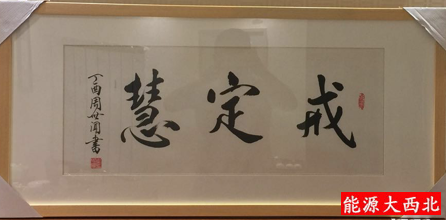 戒定慧
丁酉周世闻書
能源大西北